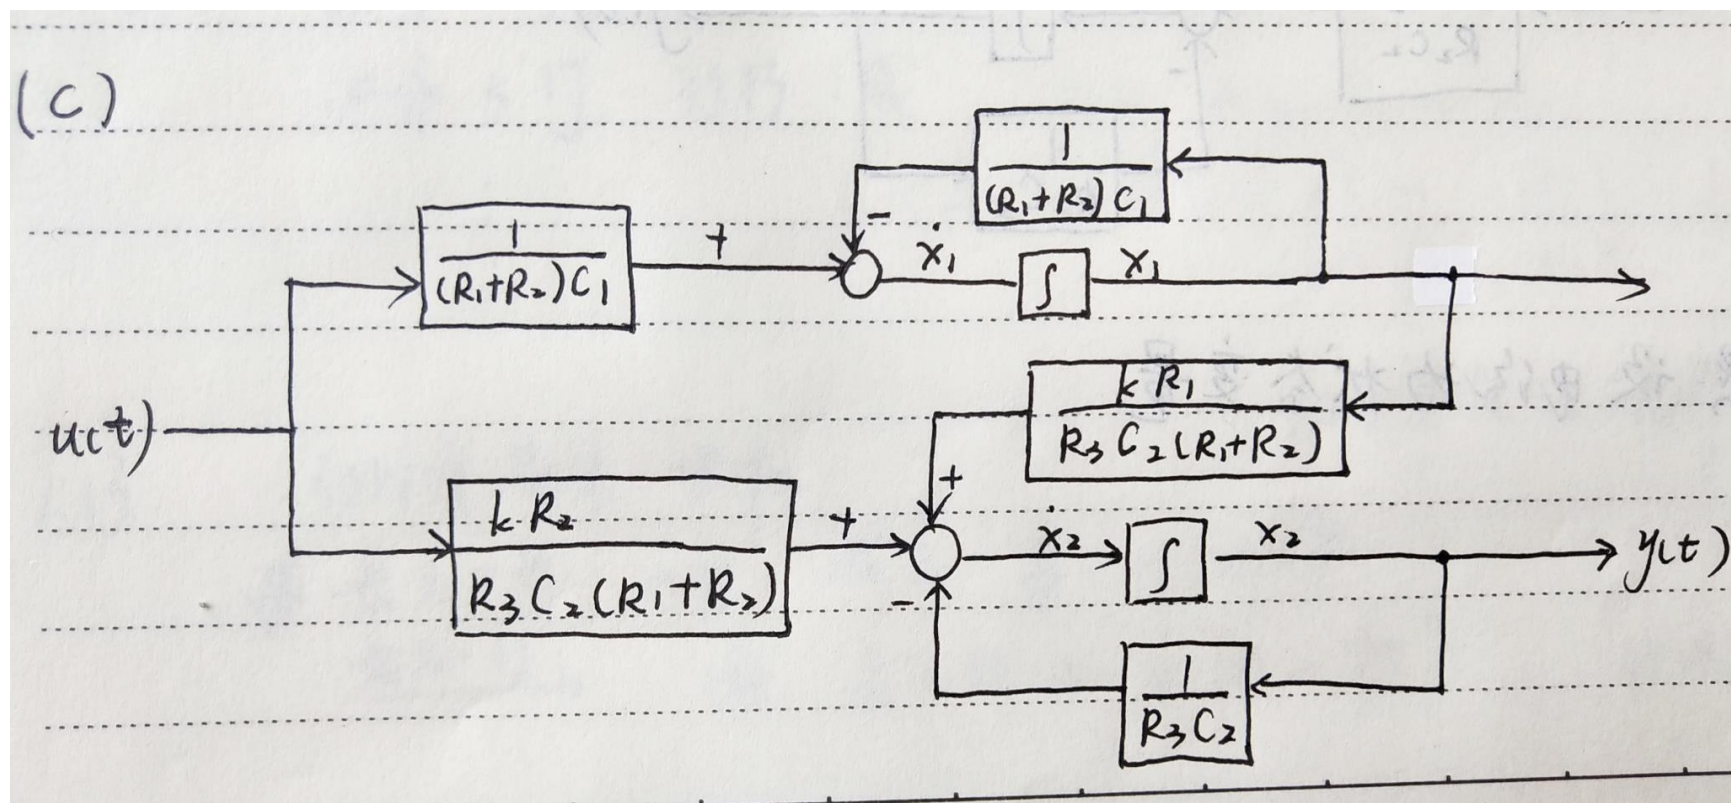 (C)
1
(R₁+R₂)C₁
-
1
(R₁+R₂)C₁
+
ẋ₁
∫
x₁
kR₁
R₃C₂(R₁+R₂)
u(t)
+
kR₂
R₃C₂(R₁+R₂)
+
ẋ₂
∫
x₂
y(t)
-
1
R₃C₂